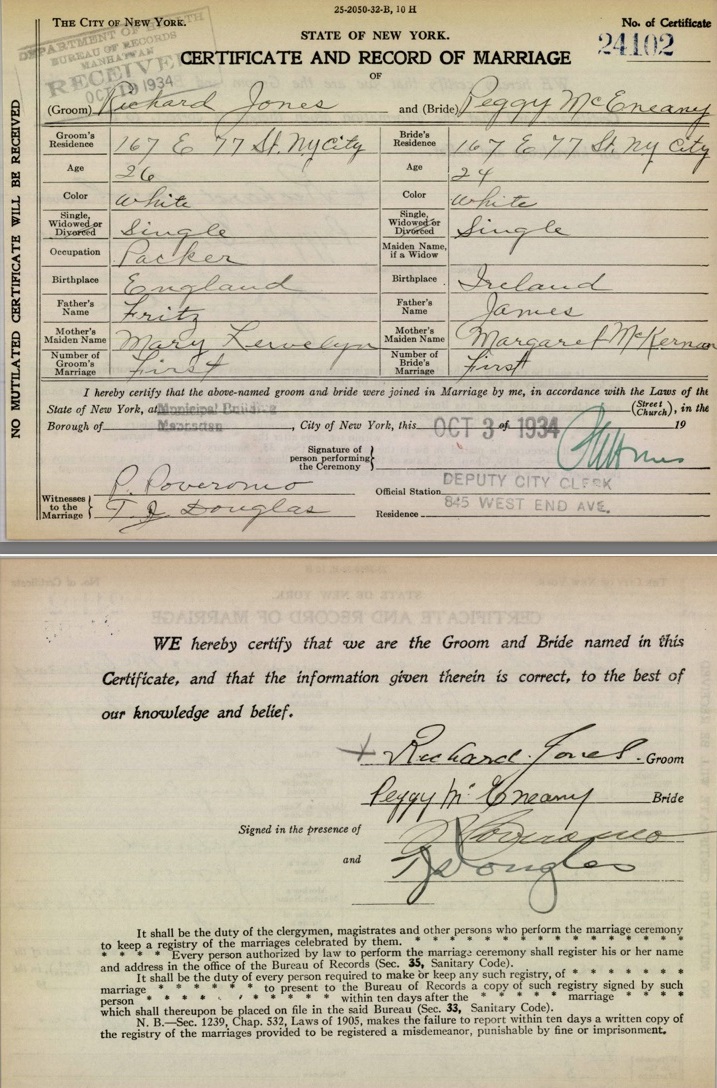 25-2050-32-B, 10 H
THE CITY OF NEW YORK.
No. of Certificate
STATE OF NEW YORK.
24102
DEPARTMENT OF HEALTH
BUREAU OF RECORDS
MANHATTAN
RECEIVED
OCT 1934
CERTIFICATE AND RECORD OF MARRIAGE
OF
(Groom) Richard Jones and (Bride) Peggy McEneany
Groom's Residence 167 E 77 St. Ny City Bride's Residence 167 E 77 St. Ny City
Age 26 Age 24
Color White Color White
Single, Widowed or Divorced Single Single, Widowed or Divorced Single
Occupation Packer Maiden Name, if a Widow
Birthplace England Birthplace Ireland
Father's Name Fritz Father's Name James
Mother's Maiden Name Mary Mother's Maiden Name Margaret McKernan
Number of Groom's Marriage First Number of Bride's Marriage First
I hereby certify that the above-named groom and bride were joined in Marriage by me, in accordance with the Laws of the
State of New York, at Municipal Building (Street Church), in the
Borough of Manhattan, City of New York, this OCT 3 of 1934 19
Signature of person performing the Ceremony
P. Poveromo
DEPUTY CITY CLERK
Official Station
Witnesses to the Marriage T J Douglas
845 WEST END AVE.
Residence
NO MUTILATED CERTIFICATE WILL BE RECEIVED
WE hereby certify that we are the Groom and Bride named in this
Certificate, and that the information given therein is correct, to the best of
our knowledge and belief.
Richard Jones. Groom
Peggy McEneany Bride
Signed in the presence of P Poveromo
and T J Douglas
It shall be the duty of the clergymen, magistrates and other persons who perform the marriage ceremony
to keep a registry of the marriages celebrated by them. * * * * * * * * * * * * * * * *
* * * * Every person authorized by law to perform the marriage ceremony shall register his or her name
and address in the office of the Bureau of Records (Sec. 35, Sanitary Code).
It shall be the duty of every person required to make or keep any such registry, of * * * * * * *
marriage * * * * * * to present to the Bureau of Records a copy of such registry signed by such
person * * * * * * * * * * within ten days after the * * * * * marriage * * * *
which shall thereupon be placed on file in the said Bureau (Sec. 33, Sanitary Code).
N. B.—Sec. 1239, Chap. 532, Laws of 1905, makes the failure to report within ten days a written copy of
the registry of the marriages provided to be registered a misdemeanor, punishable by fine or imprisonment.